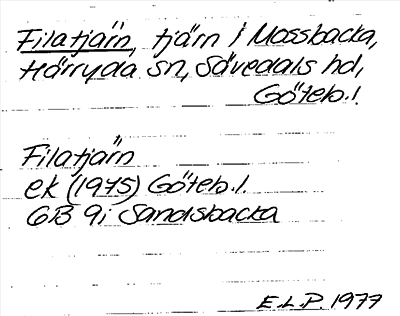 Filatjärn, tjärn i Mossbacka,
Härryda sn, Sävedals hd,
Göteb. l.
Filatjärn
ek (1975) Göteb. l.
6B 9i Sandsbacka
E.L.P. 1977